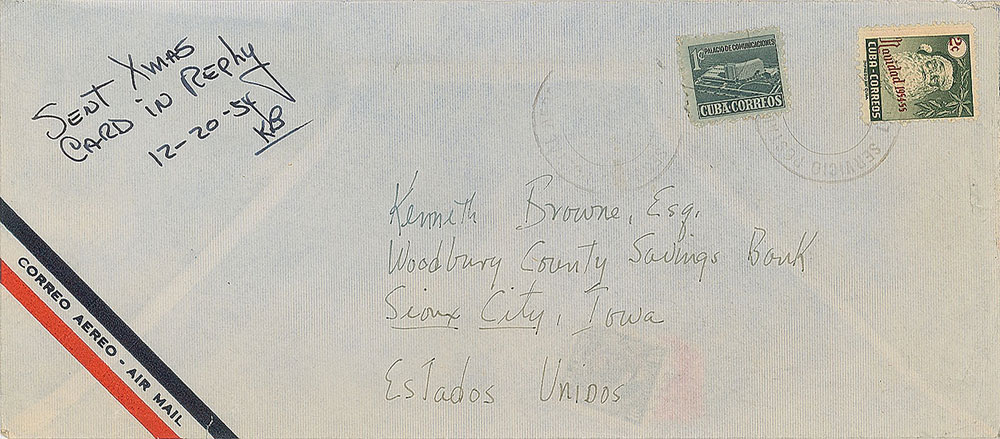 SENT XMAS
CARD IN REPHY
12-20-54
KB
1c PALACIO DE COMUNICACIONES
CUBA.CORREOS
2c
Navidad 1954-55
CUBA-CORREOS
SERVICIO POS
Kenneth Browne, Esq.
Woodbury County Savings Bank
Sioux City, Iowa
Estados Unidos
CORREO AEREO - AIR MAIL